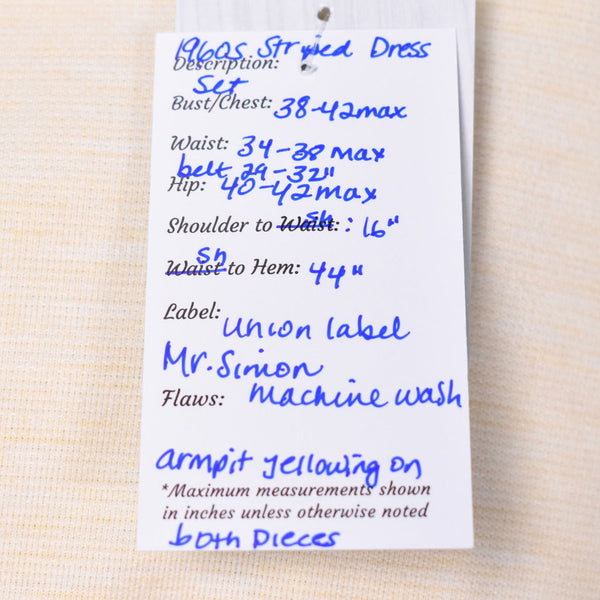 1960s Striped Dress
Description:
Set
Bust/Chest: 38-42max
Waist: 34-38 max
belt 29-32"
Hip: 40-42max
Shoulder to Waist: sh: 16"
sh
Waist to Hem: 44"
Label:
union label
Mr. Simon
Flaws: machine wash
armpit yellowing on
*Maximum measurements shown
in inches unless otherwise noted
both pieces